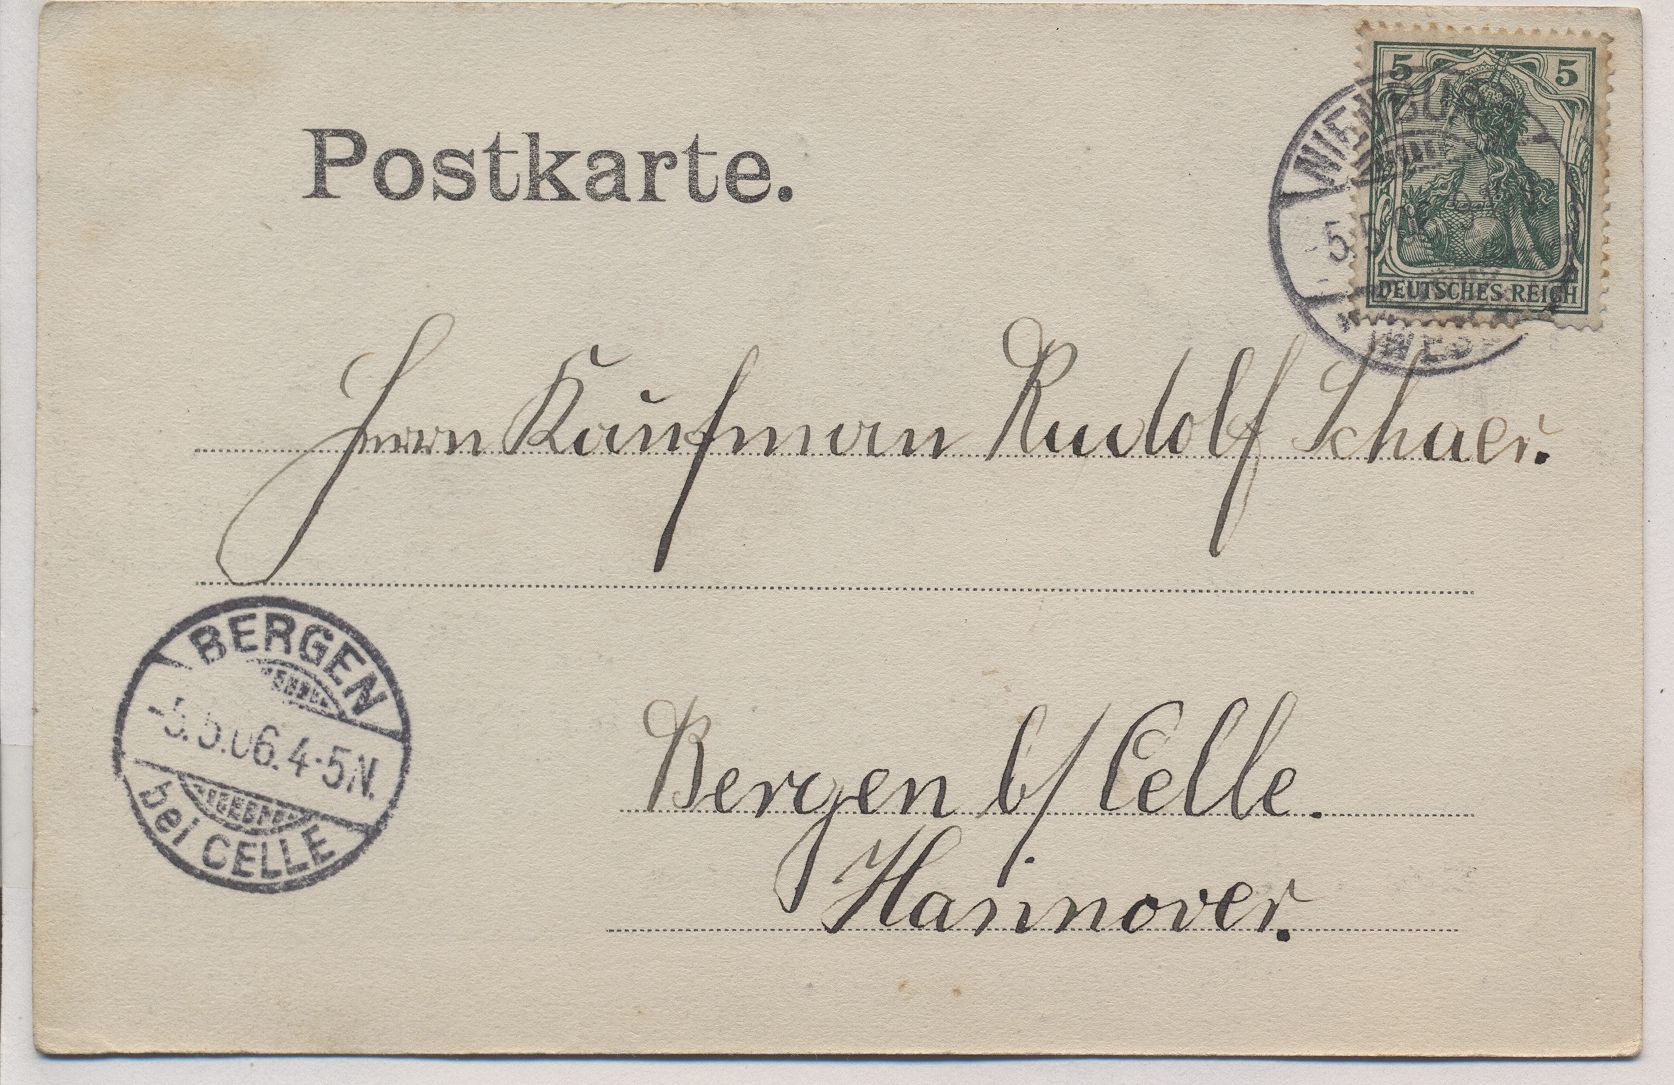 5 5
DEUTSCHES REICH
Postkarte.
5.5.
Herrn Kaufman Rudolf Schaer.
BERGEN
-5.5.06.4-5N.
bei CELLE
Bergen b/ Celle.
Hannover.